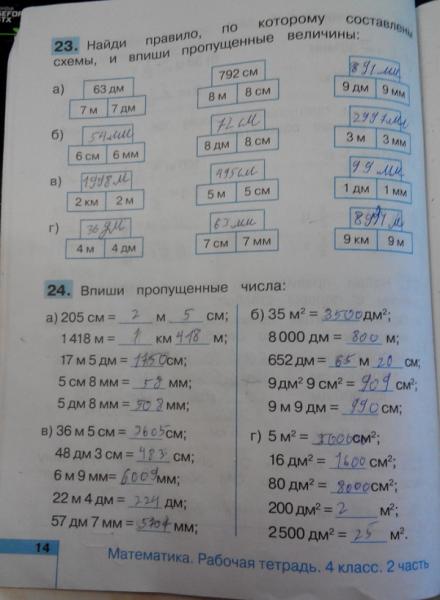 23. Найди правило, по которому составлены
схемы, и впиши пропущенные величины:
а) 63 дм 792 см 891 мм
7 м 7 дм 8 м 8 см 9 дм 9 мм
б) 54 мм 72 см 2997 мм
6 см 6 мм 8 дм 8 см 3 м 3 мм
в) 1998 м 495 см 99 мм
2 км 2 м 5 м 5 см 1 дм 1 мм
г) 36 дм 63 мм 8991 м
4 м 4 дм 7 см 7 мм 9 км 9 м
24. Впиши пропущенные числа:
а) 205 см = 2 м 5 см; б) 35 м² = 3500 дм²;
1 418 м = 1 км 418 м; 8 000 дм = 800 м;
17 м 5 дм = 1750 см; 652 дм = 65 м 20 см;
5 см 8 мм = 58 мм; 9 дм² 9 см² = 909 см²;
5 дм 8 мм = 508 мм; 9 м 9 дм = 990 см;
в) 36 м 5 см = 3605 см; г) 5 м² = см²;
48 дм 3 см = 483 см; 16 дм² = 1600 см²;
6 м 9 мм = 6009 мм; 80 дм² = 8000 см²;
22 м 4 дм = 224 дм; 200 дм² = 2 м²;
57 дм 7 мм = 5707 мм; 2 500 дм² = 25 м².
14 Математика. Рабочая тетрадь. 4 класс. 2 часть